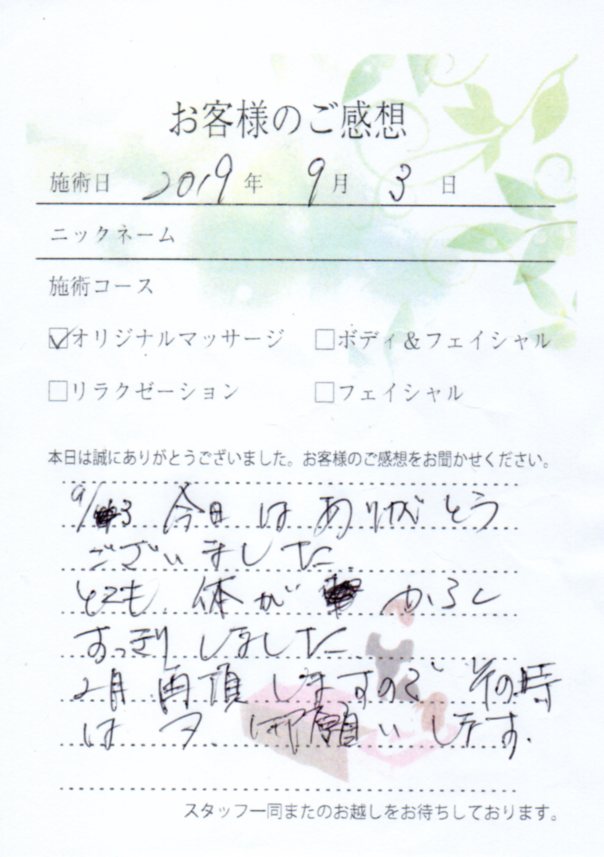 お客様のご感想
施術日 2019年 9月 3日
ニックネーム
施術コース
☑オリジナルマッサージ □ボディ＆フェイシャル
□リラクゼーション □フェイシャル
本日は誠にありがとうございました。お客様のご感想をお聞かせください。
9/3 今日は ありがとう
ございました
とても 体が かるく
すっきりしました
2月 再 しますので その時
は 又、御願いします.
スタッフ一同またのお越しをお待ちしております。